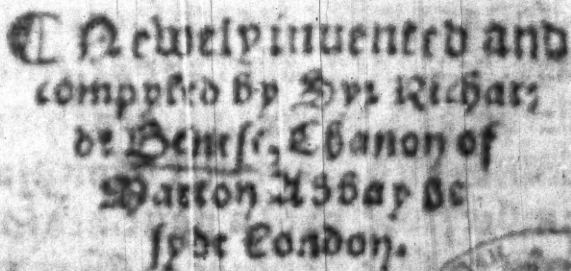 ☾ Newely invented and
compyled by Syr Richar⸗
de Benese, Chanon of
Marton Abbay be
syde London.